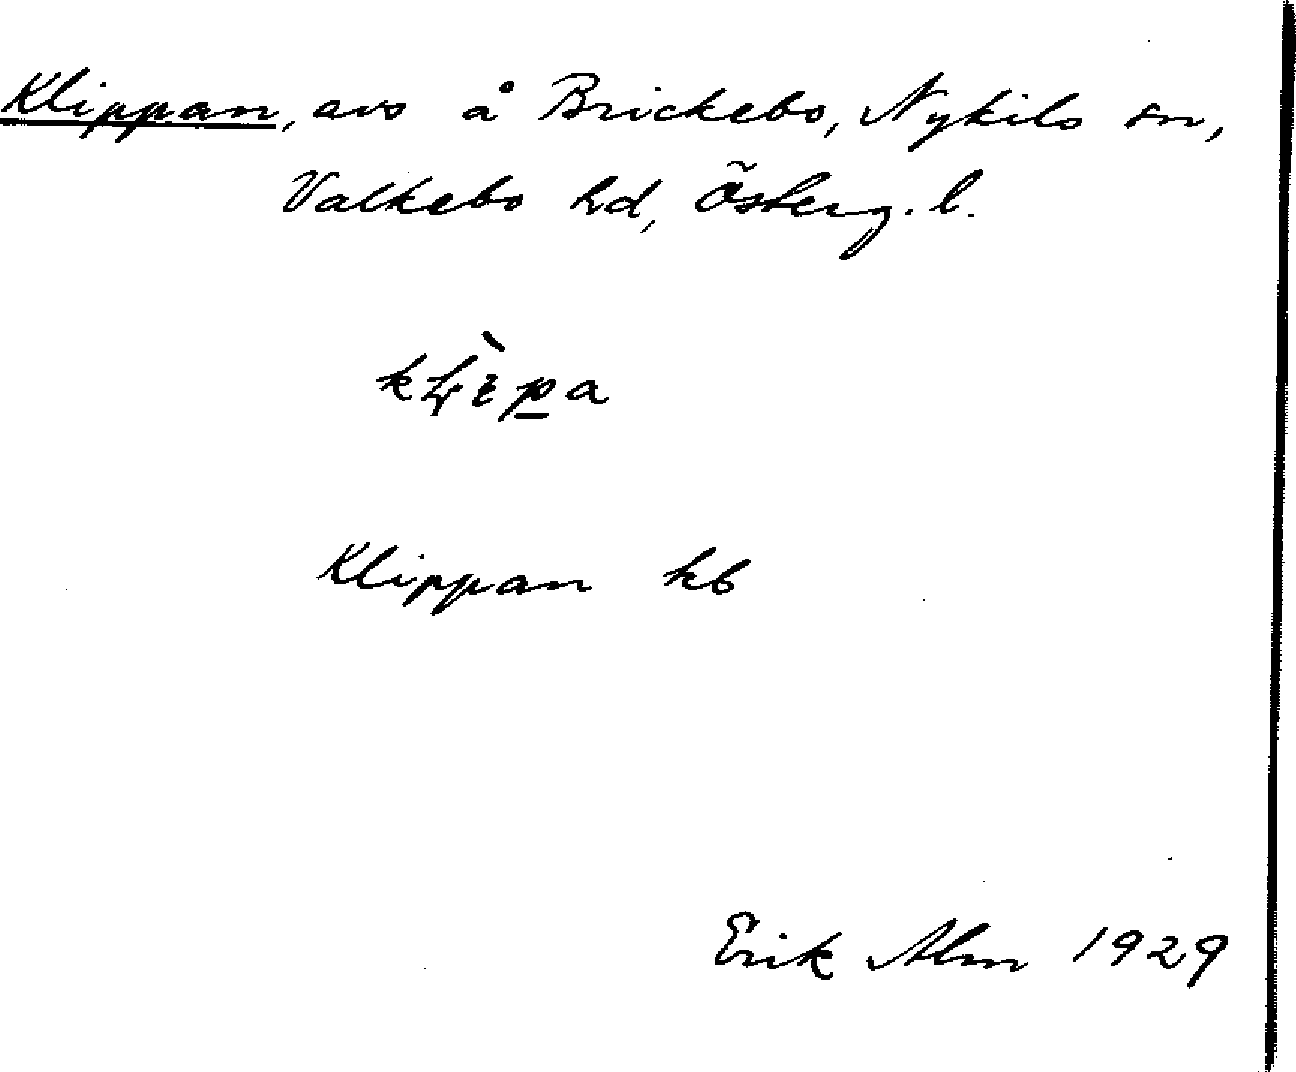 Klippan, avs å Brickebo, Nykils sn,
Valkebo hd, Österg. l.
Klippan kb
Erik Alm 1929